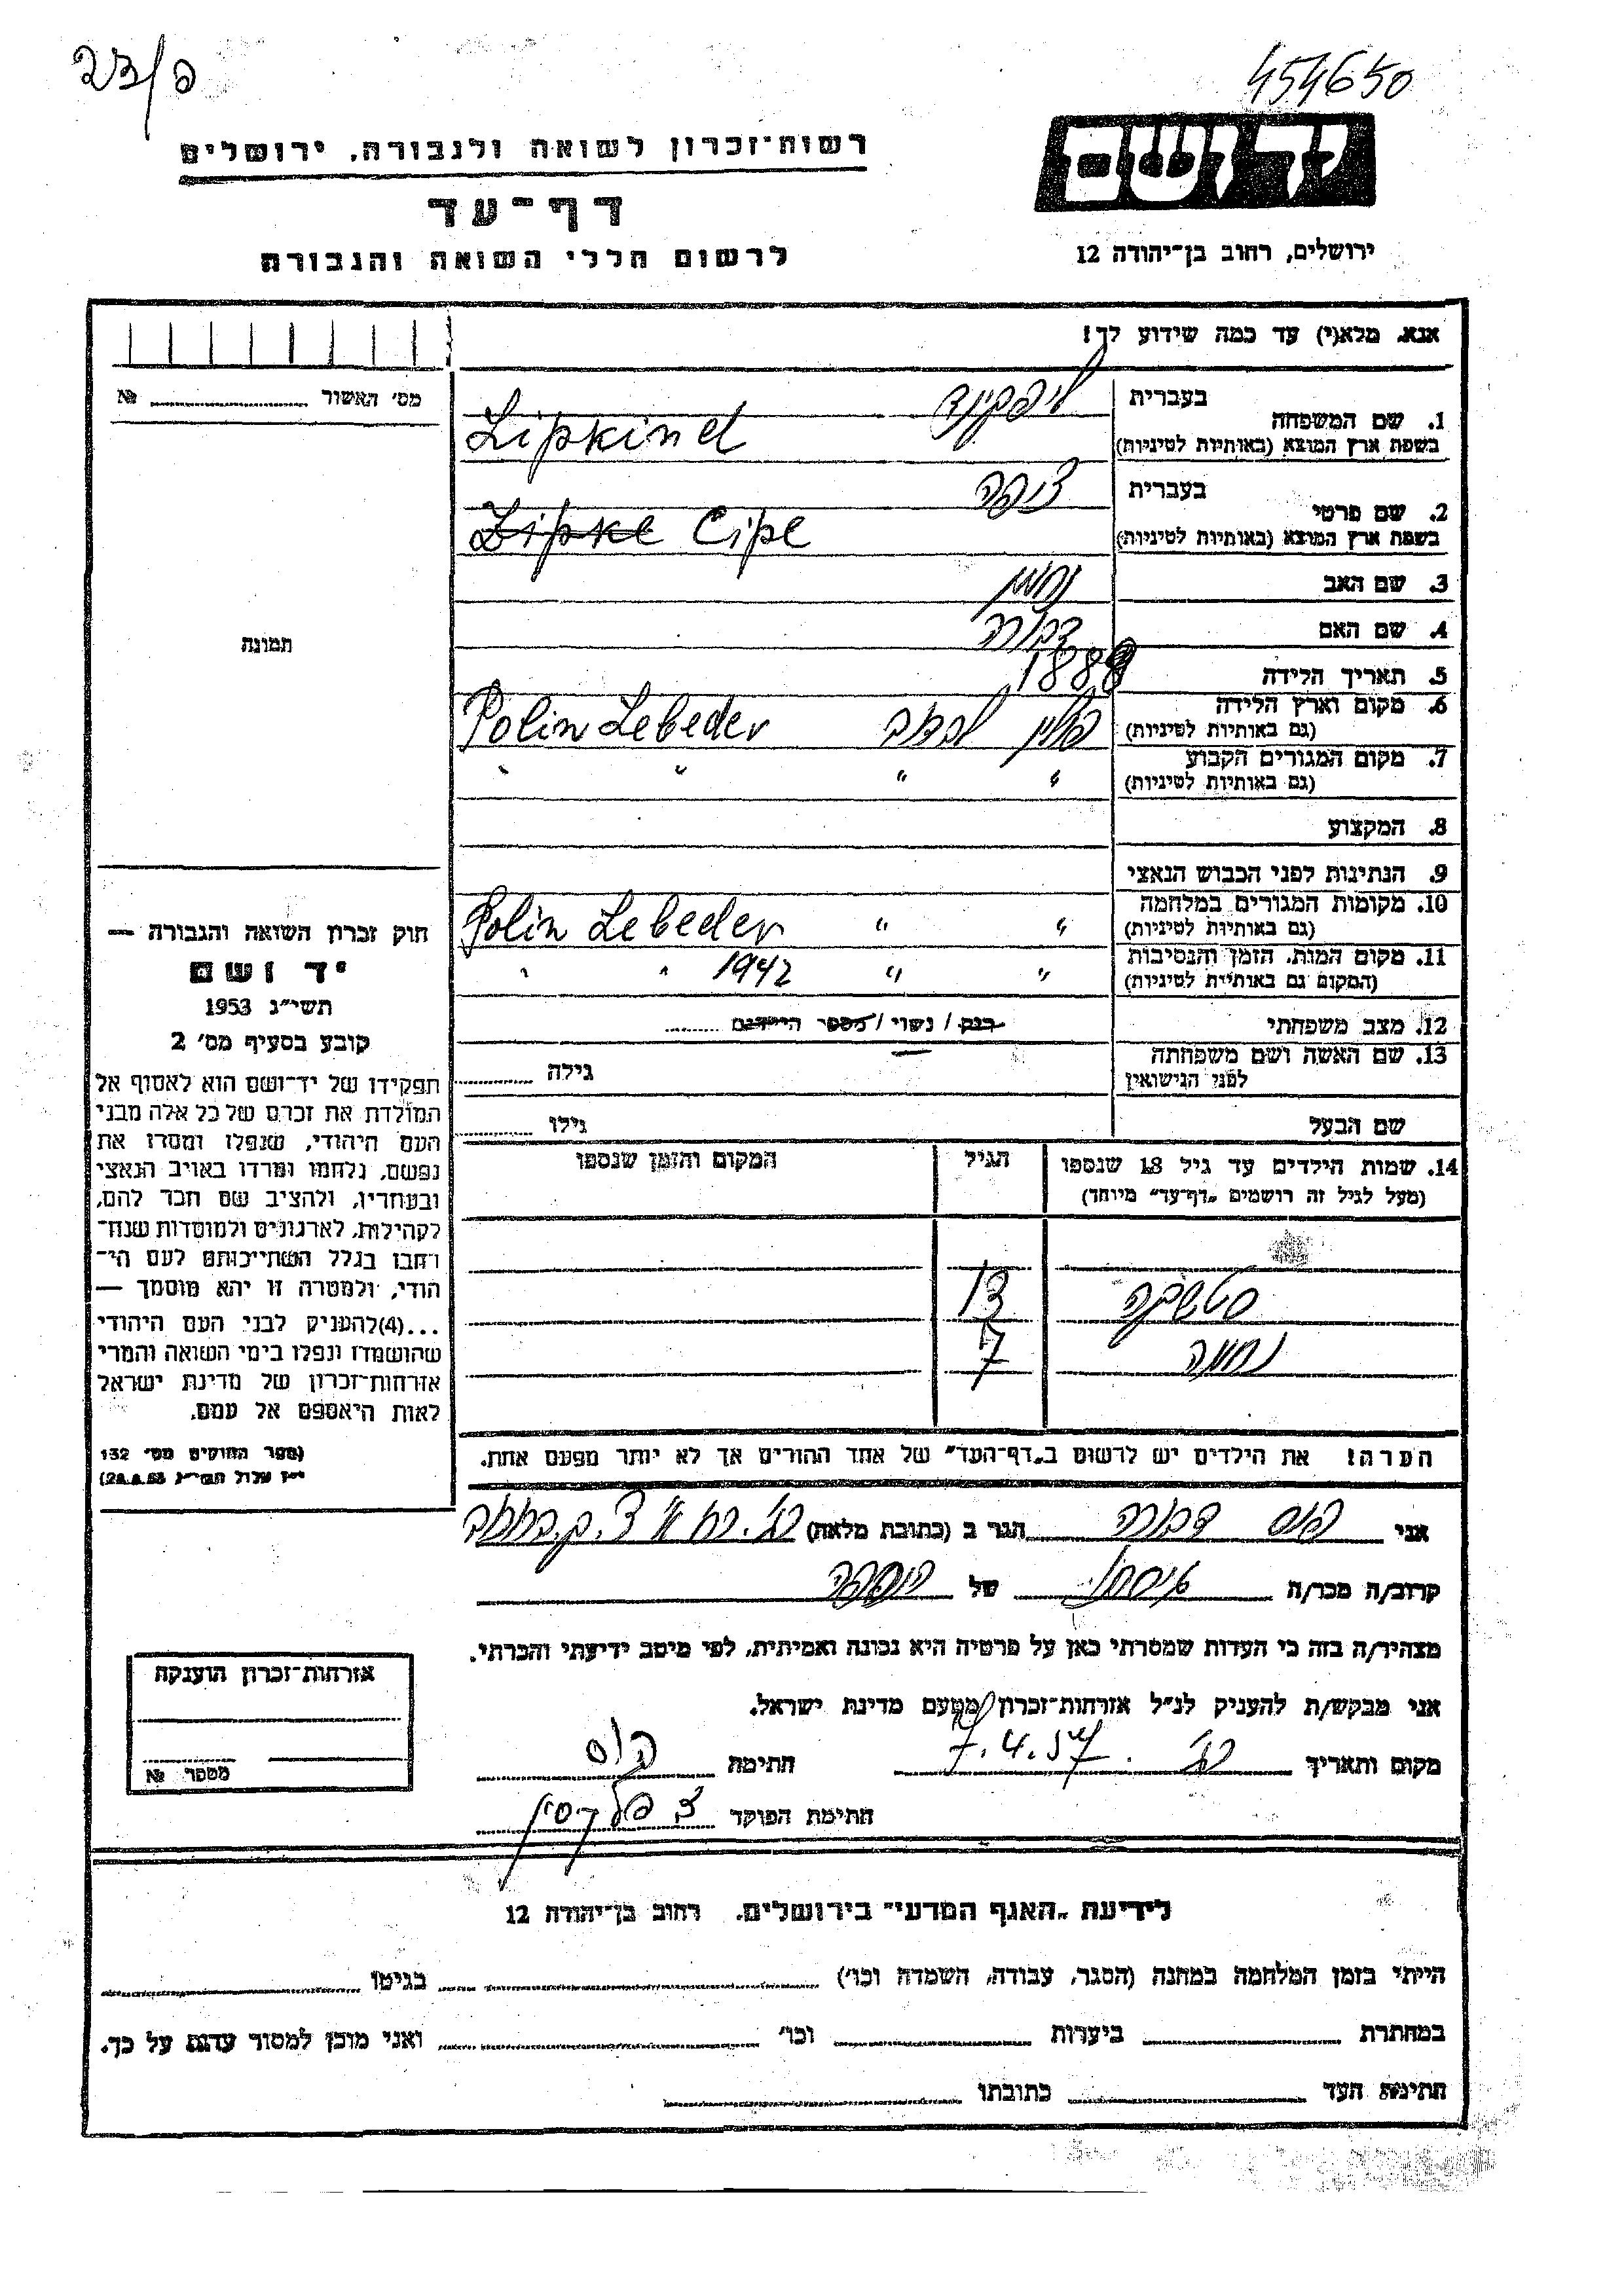 454650
23/פ
יד ושם
רשות־זכרון לשואה ולגבורה, ירושלים
דף־עד
לרשום חללי השואה והגבורה
ירושלים, רחוב בן־יהודה 12
אנא, מלא(י) עד כמה שידוע לך!
מס' האשור № 
1. שם המשפחה
בעברית ליפקינד
בשפת ארץ המוצא (באותיות לטיניות) Lipkind
2. שם פרטי
בעברית ציפה
בשפת ארץ המוצא (באותיות לטיניות) Zipke Cipe
3. שם האב נחמן
4. שם האם דבורה
5. תאריך הלידה 1888
6. מקום וארץ הלידה
(גם באותיות לטיניות) פולין לבדב Polin Lebeder
7. מקום המגורים הקבוע
(גם באותיות לטיניות) " " " "
8. המקצוע
9. הנתינות לפני הכבוש הנאצי
10. מקומות המגורים במלחמה
(גם באותיות לטיניות) " " Polin Lebeder
11. מקום המות, הזמן והנסיבות
(המקום גם באותיות לטיניות) " " 1942 " "
12. מצב משפחתי רוק / נשוי / מספר הילדים
13. שם האשה ושם משפחתה
לפני הנישואין גילה
שם הבעל גילו
14. שמות הילדים עד גיל 18 שנספו הגיל המקום והזמן שנספו
(מעל לגיל זה רושמים „דף־עד" מיוחד)
13
נחמה 7
הערה! את הילדים יש לרשום ב„דף־העד" של אחד ההורים אך לא יותר מפעם אחת.
תמונה
חוק זכרון השואה והגבורה —
יד ושם
תשי"ג 1953
קובע בסעיף מס' 2
תפקידו של יד־ושם הוא לאסוף אל
המולדת את זכרם של כל אלה מבני
העם היהודי, שנפלו ומסרו את
נפשם, נלחמו ומרדו באויב הנאצי
ובעוזריו, ולהציב שם וזכר להם,
לקהילות, לארגונים ולמוסדות שנח־
רבו בגלל השתייכותם לעם הי־
הודי, ולמטרה זו יהא מוסמך —
...(4)להעניק לבני העם היהודי
שהושמדו ונפלו בימי השואה והמרי
אזרחות־זכרון של מדינת ישראל
לאות היאספם אל עמם.
(ספר החוקים מס' 132
י"ז אלול תשי"ג 28.8.53)
אני דבורה הגר ב (כתובת מלאה)
קרוב/ה מכר/ה של
מצהיר/ה בזה כי העדות שמסרתי כאן על פרטיה היא נכונה ואמיתית, לפי מיטב ידיעתי והכרתי.
אני מבקש/ת להעניק לנ"ל אזרחות־זכרון מטעם מדינת ישראל.
מקום ותאריך 7.4.57 חתימה
חתימת הפוקד
אזרחות־זכרון הוענקה
מספר №
לידיעת „האגף המדעי" בירושלים, רחוב בן־יהודה 12
הייתי בזמן המלחמה במחנה (הסגר, עבודה, השמדה וכו') בגיטו
במחתרת ביערות וכו' ואני מוכן למסור עדות על כך.
חתימת העד כתובתו